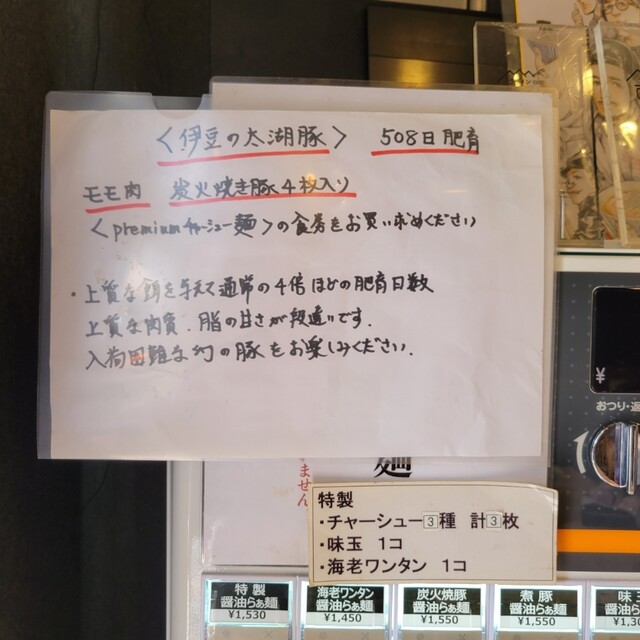 〈伊豆の太湖豚〉 508日肥育
モモ肉 炭火焼き豚4枚入り
〈premiumチャーシュー麺〉の食券をお買い求めください
・上質な餌を与えて通常の4倍ほどの肥育日数
上質な肉質、脂の甘さが段違いです.
入荷困難な幻の豚をお楽しみください.
麺
ません
¥
おつり・返
特製
・チャーシュー3種 計3枚
・味玉 1コ
・海老ワンタン 1コ
特製
醤油らぁ麺
¥1,530
海老ワンタン
醤油らぁ麺
¥1,450
炭火焼豚
醤油らぁ麺
¥1,550
煮豚
醤油らぁ麺
¥1,550
味玉
醤油らぁ麺